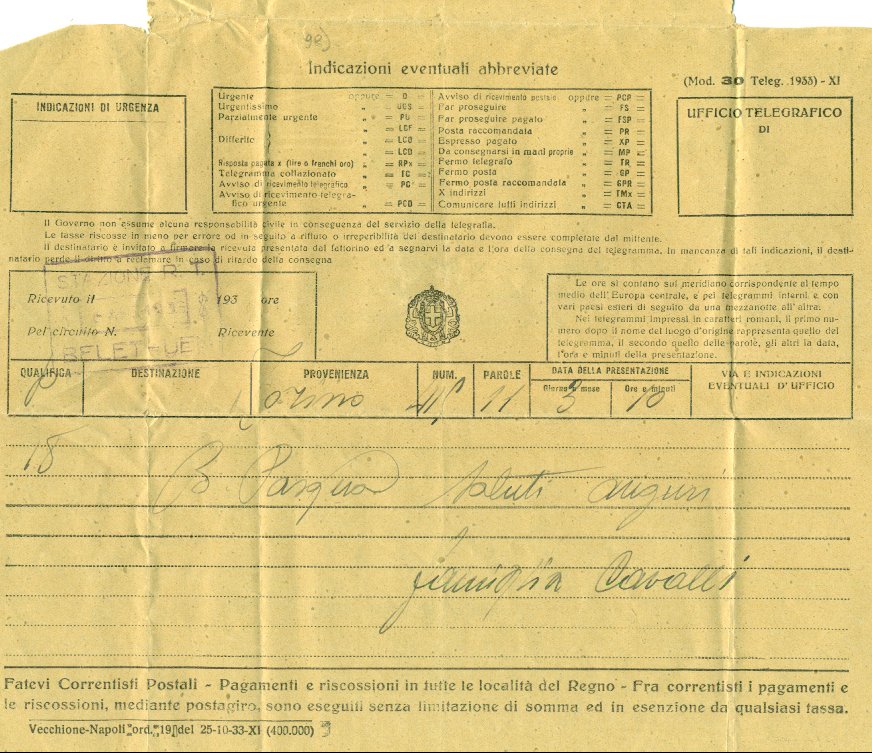 Indicazioni eventuali abbreviate
(Mod. 30 Teleg. 1933) - XI
INDICAZIONI DI URGENZA
Urgente oppure = D =
Urgentissimo „ = UGS =
Parzialmente urgente „ = PU =
„ = LCF =
Differito „ = LCO =
„ = LCD =
Risposta pagata x (lire o franchi oro) „ = RPx =
Telegramma collazionato „ = TC =
Avviso di ricevimento telegrafico „ = PC =
Avviso di ricevimento telegra-
fico urgente „ = PCD =
Avviso di ricevimento postale oppure = PCP =
Far proseguire „ = FS =
Far proseguire pagato „ = FSP =
Posta raccomandata „ = PR =
Espresso pagato „ = XP =
Da consegnarsi in mani proprie „ = MP =
Fermo telegrafo „ = TR =
Fermo posta „ = GP =
Fermo posta raccomandata „ = GPR =
X indirizzi „ = TMx =
Comunicare tutti indirizzi „ = CTA =
UFFICIO TELEGRAFICO
DI
Il Governo non assume alcuna responsabilità civile in conseguenza del servizio della telegrafia.
Le tasse riscosse in meno per errore od in seguito a rifiuto o irreperibilità del destinatario devono essere completate dal mittente.
Il destinatario è invitato a firmare la ricevuta presentata dal fattorino ed a segnarvi la data e l'ora della consegna del telegramma. In mancanza di tali indicazioni, il desti-
natario perde il diritto a reclamare in caso di ritardo della consegna
STAZIONE R. T.
BELET-UEN
Ricevuto il 193 ore
Pel circuito N. Ricevente
Le ore si contano sul meridiano corrispondente al tempo
medio dell'Europa centrale, e pei telegrammi interni e con
vari paesi esteri di seguito da una mezzanotte all'altra.
Nei telegrammi impressi in caratteri romani, il primo nu-
mero dopo il nome del luogo d'origine rappresenta quello del
telegramma, il secondo quello delle parole, gli altri la data,
l'ora e minuti della presentazione.
QUALIFICA DESTINAZIONE PROVENIENZA NUM. PAROLE DATA DELLA PRESENTAZIONE VIA E INDICAZIONI
Giorno e mese Ore e minuti EVENTUALI D'UFFICIO
Torino 11 3 10
15 B. Pasqua saluti auguri
famiglia Cavalli
Fatevi Correntisti Postali - Pagamenti e riscossioni in tutte le località del Regno - Fra correntisti i pagamenti e
le riscossioni, mediante postagiro, sono eseguiti senza limitazione di somma ed in esenzione da qualsiasi tassa.
Vecchione-Napoli ord. 191 del 25-10-33-XI (400.000)